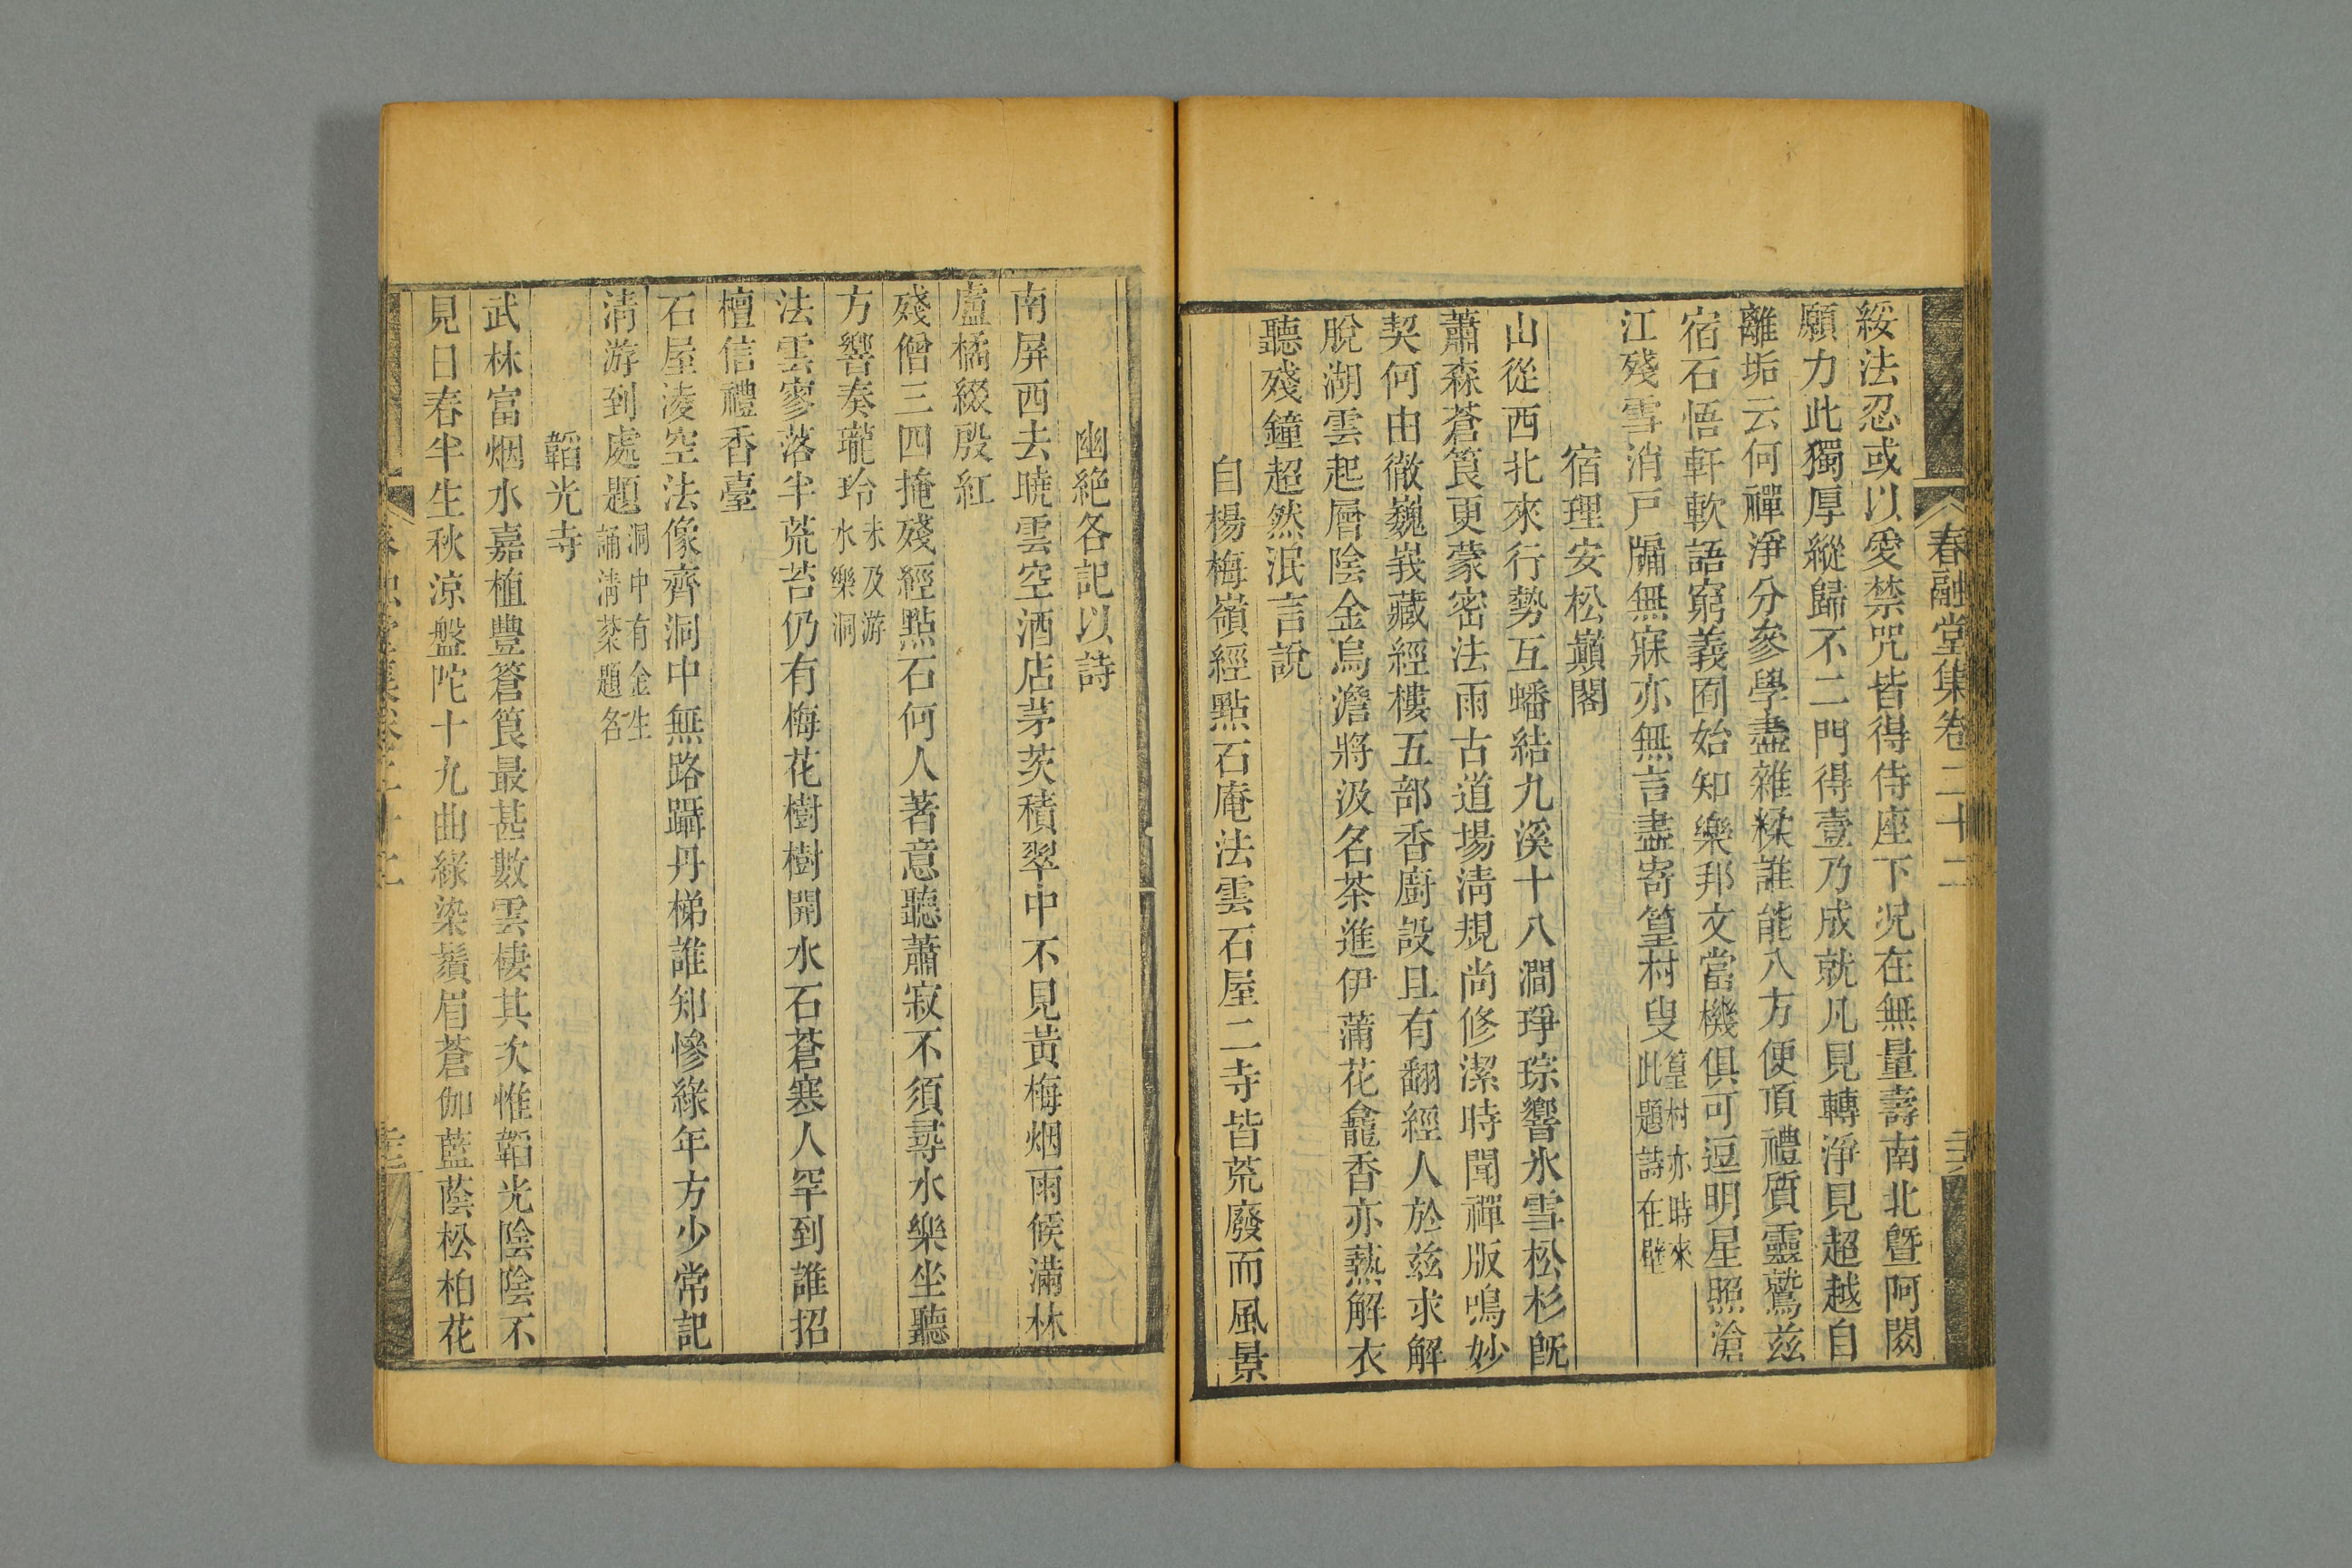 春融堂集卷二十二
綏法忍或以愛禁咒皆得侍座下况在無量壽南北曁阿閦
願力此獨厚縱歸不二門得壹乃成就凡見轉淨見超越自
離垢云何禪淨分參學盡雜糅誰能八方便頂禮質靈鷲兹
宿石悟軒軟語窮義囿始知樂邦文當機俱可逗明星照滄
江殘雪消戸牖無寐亦無言盡寄篁村叟篁村亦時來
此題詩在壁
宿理安松巔閣
山從西北來行勢互蟠結九溪十八澗琤琮響氷雪松杉旣
蕭森蒼筤更蒙密法雨古道場淸規尚修潔時聞禪版鳴妙
契何由徹巍峩藏經樓五部香廚設且有翻經人於兹求解
脫湖雲起層陰金烏澹將汲名茶進伊蒲花龕香亦爇解衣
聽殘鐘超然泯言說
自楊梅嶺經點石庵法雲石屋二寺皆荒廢而風景
幽絶各記以詩
南屏西去曉雲空酒店茅茨積翠中不見黃梅烟雨候滿林
盧橘綴殷紅
殘僧三四掩殘經點石何人著意聽蕭寂不須尋水樂坐聽
方響奏瓏玲未及游
水樂洞
法雲寥落半荒苔仍有梅花樹樹開水石蒼寒人罕到誰招
檀信禮香臺
石屋凌空法像齊洞中無路躡丹梯誰知慘綠年方少常記
淸游到處題洞中有金生
誦淸棻題名
韜光寺
武林富烟水嘉植豐篬筤最甚數雲棲其次惟韜光陰陰不
見日春半生秋涼盤陀十九曲綠染鬚眉蒼伽藍蔭松柏花